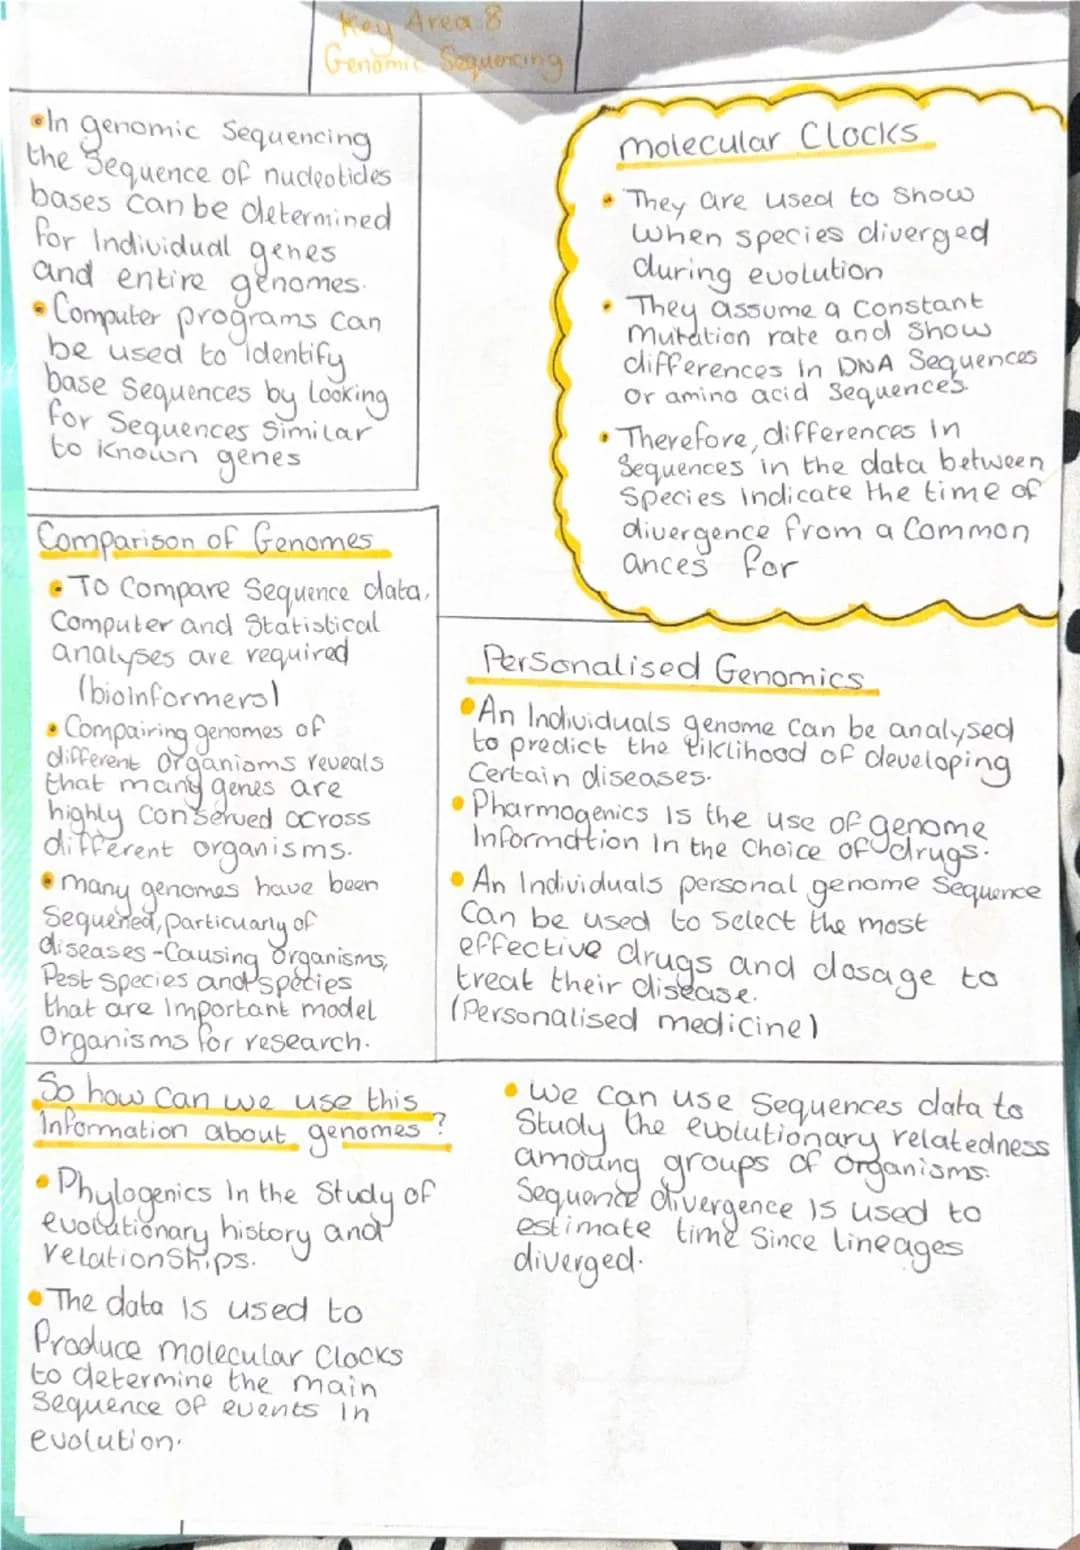 Key Area 8
Genomic Sequencing
• In genomic Sequencing
the Sequence of nucleotides
bases can be determined
for Individual genes
and entire genomes.
• Computer programs can
be used to identify
base Sequences by Looking
for Sequences Similar
to Known genes
Molecular Clocks
• They are used to Show
when species diverged
during evolution
• They assume a Constant
Mutation rate and Show
differences In DNA Sequences
Or amino acid Sequences.
• Therefore, differences In
Sequences in the data between
Species Indicate the time of
divergence from a Common
ances for
Comparison of Genomes
• To Compare Sequence data,
Computer and Statistical
analyses are required
(bioinformers)
• Compairing genomes of
different Organisms reveals
that many genes are
highly Conserved across
different organisms.
• many genomes have been
Sequened, particuarly of
diseases-Causing Organisms,
Pest Species and species
that are Important model
Organisms for research.
Personalised Genomics
• An Individuals genome Can be analysed
to predict the liklihood of developing
Certain diseases.
• Pharmogenics Is the use of genome
Information In the Choice of drugs.
• An Individuals personal genome Sequence
Can be used to Select the most
effective drugs and dosage to
treat their disease.
(Personalised medicine)
So how Can we use this
Information about genomes?
• Phylogenics In the Study of
evolutionary history and
relationships.
• The data Is used to
Produce Molecular Clocks
to determine the main
Sequence of events In
evolution.
• We Can use Sequences data to
Study the evolutionary relatedness
amoung groups of Organisms.
Sequence divergence Is used to
estimate time Since Lineages
diverged.